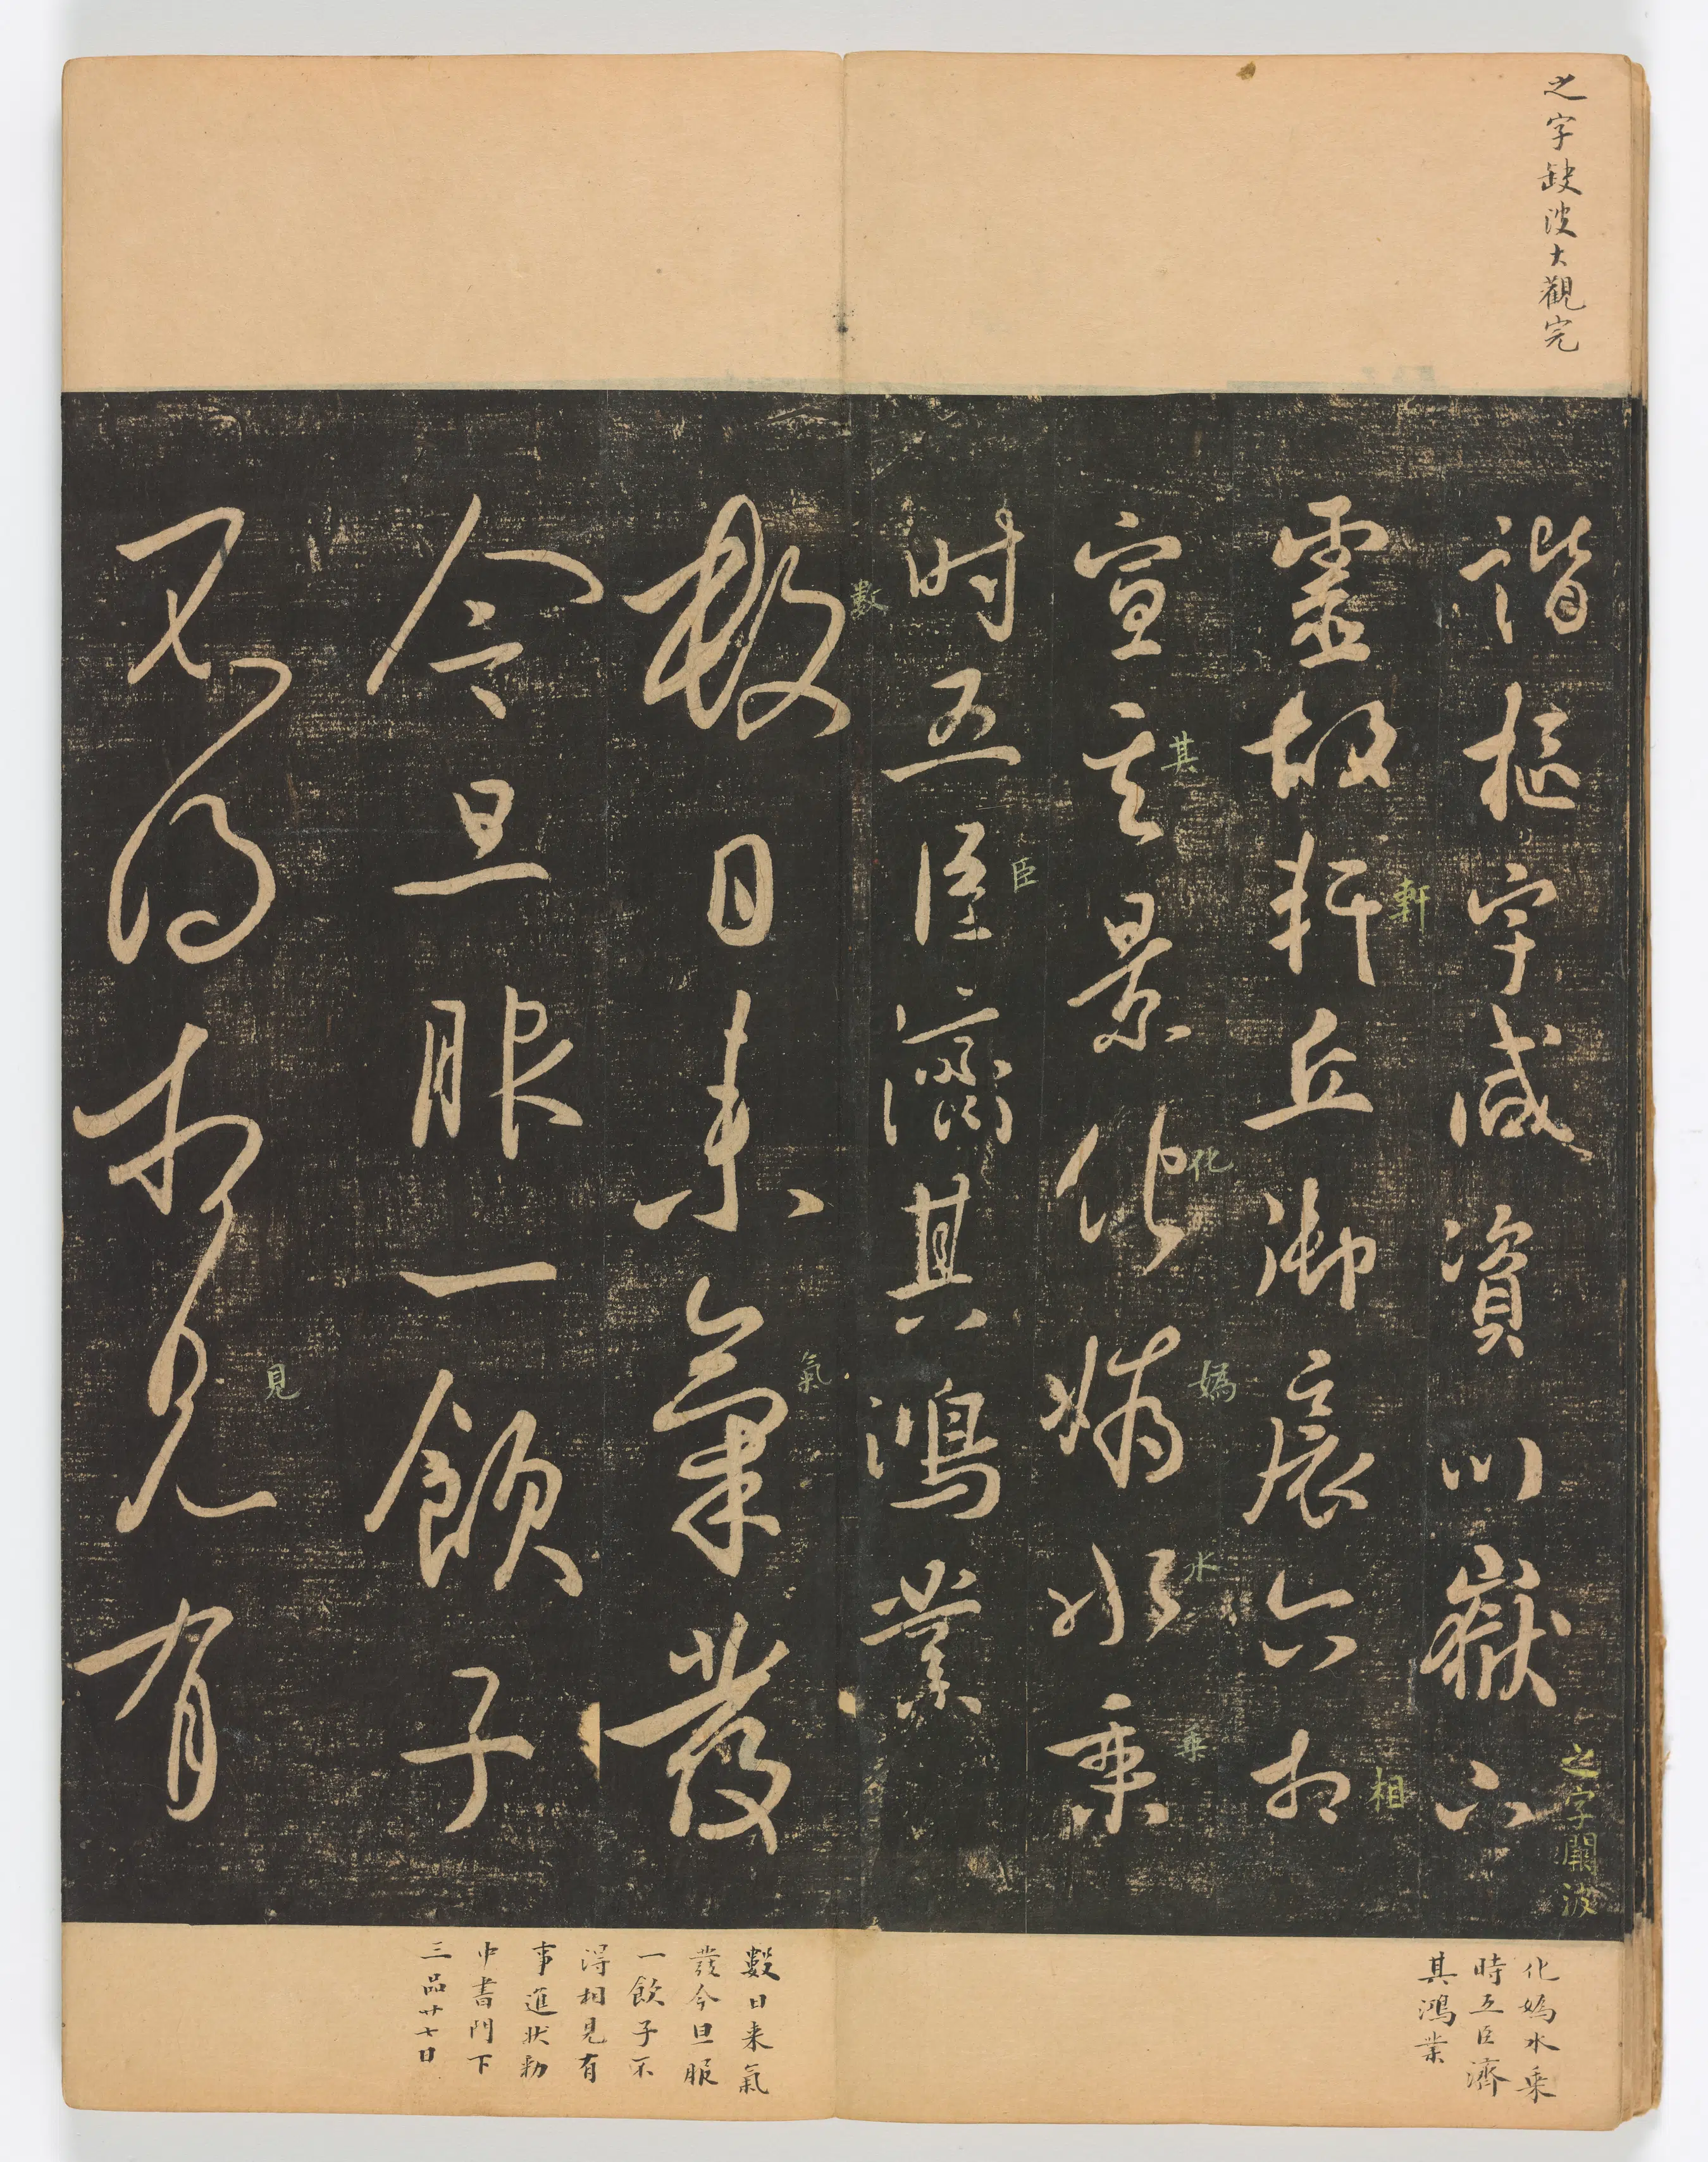 之字缺波大觀完
諧樞宇咸資川嶽六
靈故軒丘御扆六相
宣其景化媯水乘
时五臣濟其鴻業
數日来氣發
今旦服一飲子
不得相見有
軒
相
之字闕波
其
化
媯
水
乘
臣
數
氣
見
化媯水乘
時五臣濟
其鴻業
數日来氣
發今旦服
一飲子不
得相見有
事進状勑
中書門下
三品廿七日